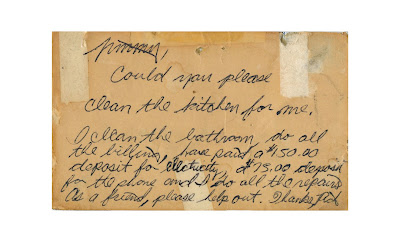 Jimmy,
Could you please
clean the kitchen for me.
I clean the bathroom, do all
the billing, have paid a $150.00
deposit for electricity, a $75.00 deposit
for the phone and I do all the repairs
As a friend, please help out. Thanks,